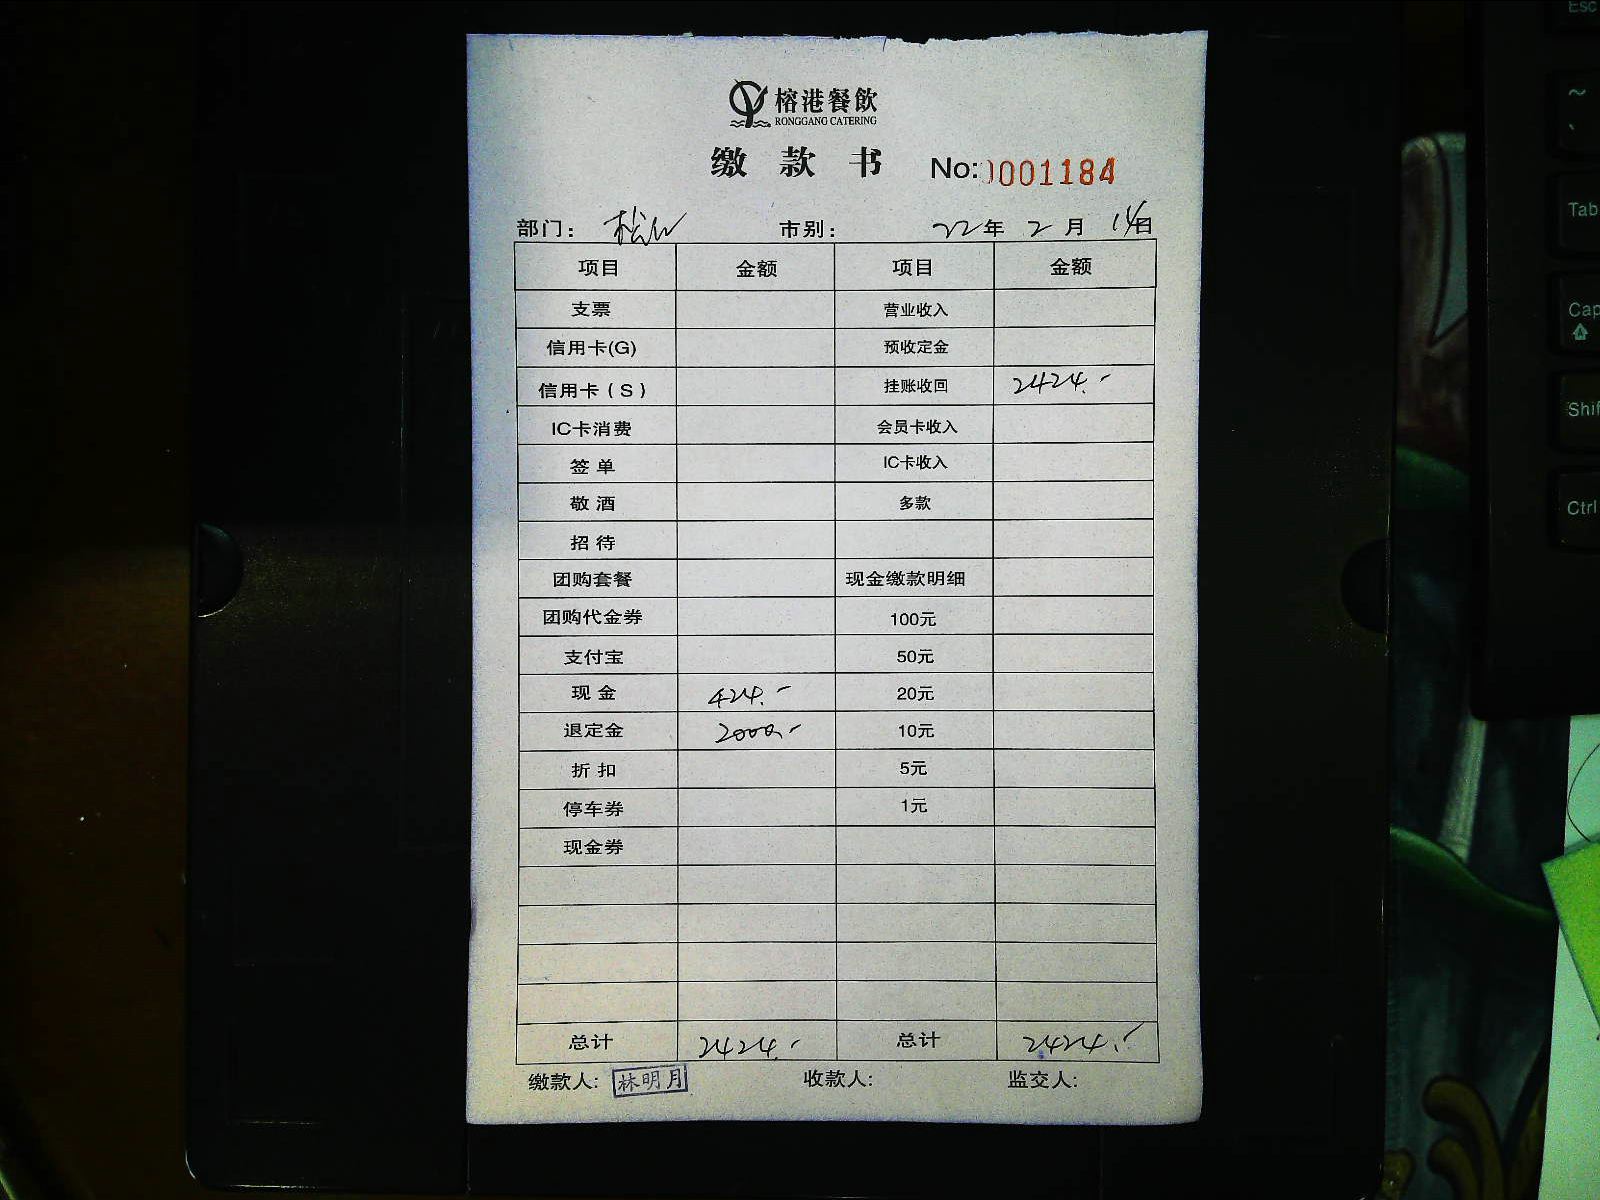 榕港餐飲
RONGGANG CATERING
缴款书 No:0001184
部门: 松山 市别: 22年 2月 14日
项目 金额 项目 金额
支票 营业收入
信用卡(G) 预收定金
信用卡(S) 挂账收回 2424.-
IC卡消费 会员卡收入
签单 IC卡收入
敬酒 多款
招待
团购套餐 现金缴款明细
团购代金券 100元
支付宝 50元
现金 424.- 20元
退定金 2000.- 10元
折扣 5元
停车券 1元
现金券
总计 2424.- 总计 2424.-
缴款人: 林明月 收款人: 监交人:
Esc
~
`
Tab
Cap
Shif
Ctrl